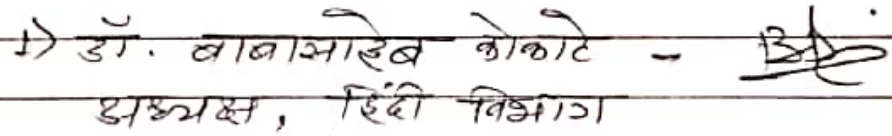 1) डॉ. बाबासाहेब कोकाटे -
अध्यक्ष, हिंदी विभाग